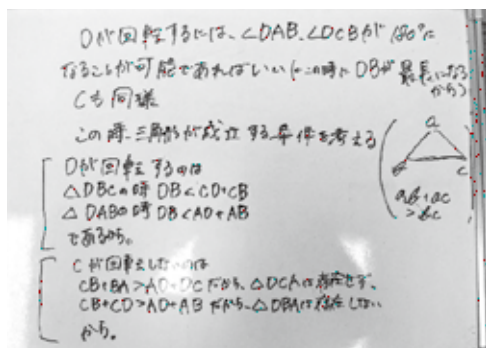 Dが回転するには、∠DAB、∠DCBが180°に
なることが可能であればいい(←この時にDBが最長になるから)
Cも同様
この時、三角形が成立する条件を考える
a
c
ab+ac
>bc
Dが回転するのは
△DBCの時 DB<CD+CB
△DABの時 DB<AD+AB
であるから。
Cが回転しないのは
CB+BA>AD+DCだから、△DCAは存在せず、
CB+CD>AD+ABだから、△DBAは存在しない
から。